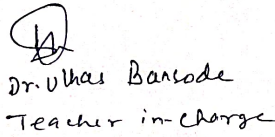 Dr. Ulhas Bansode
Teacher in-charge